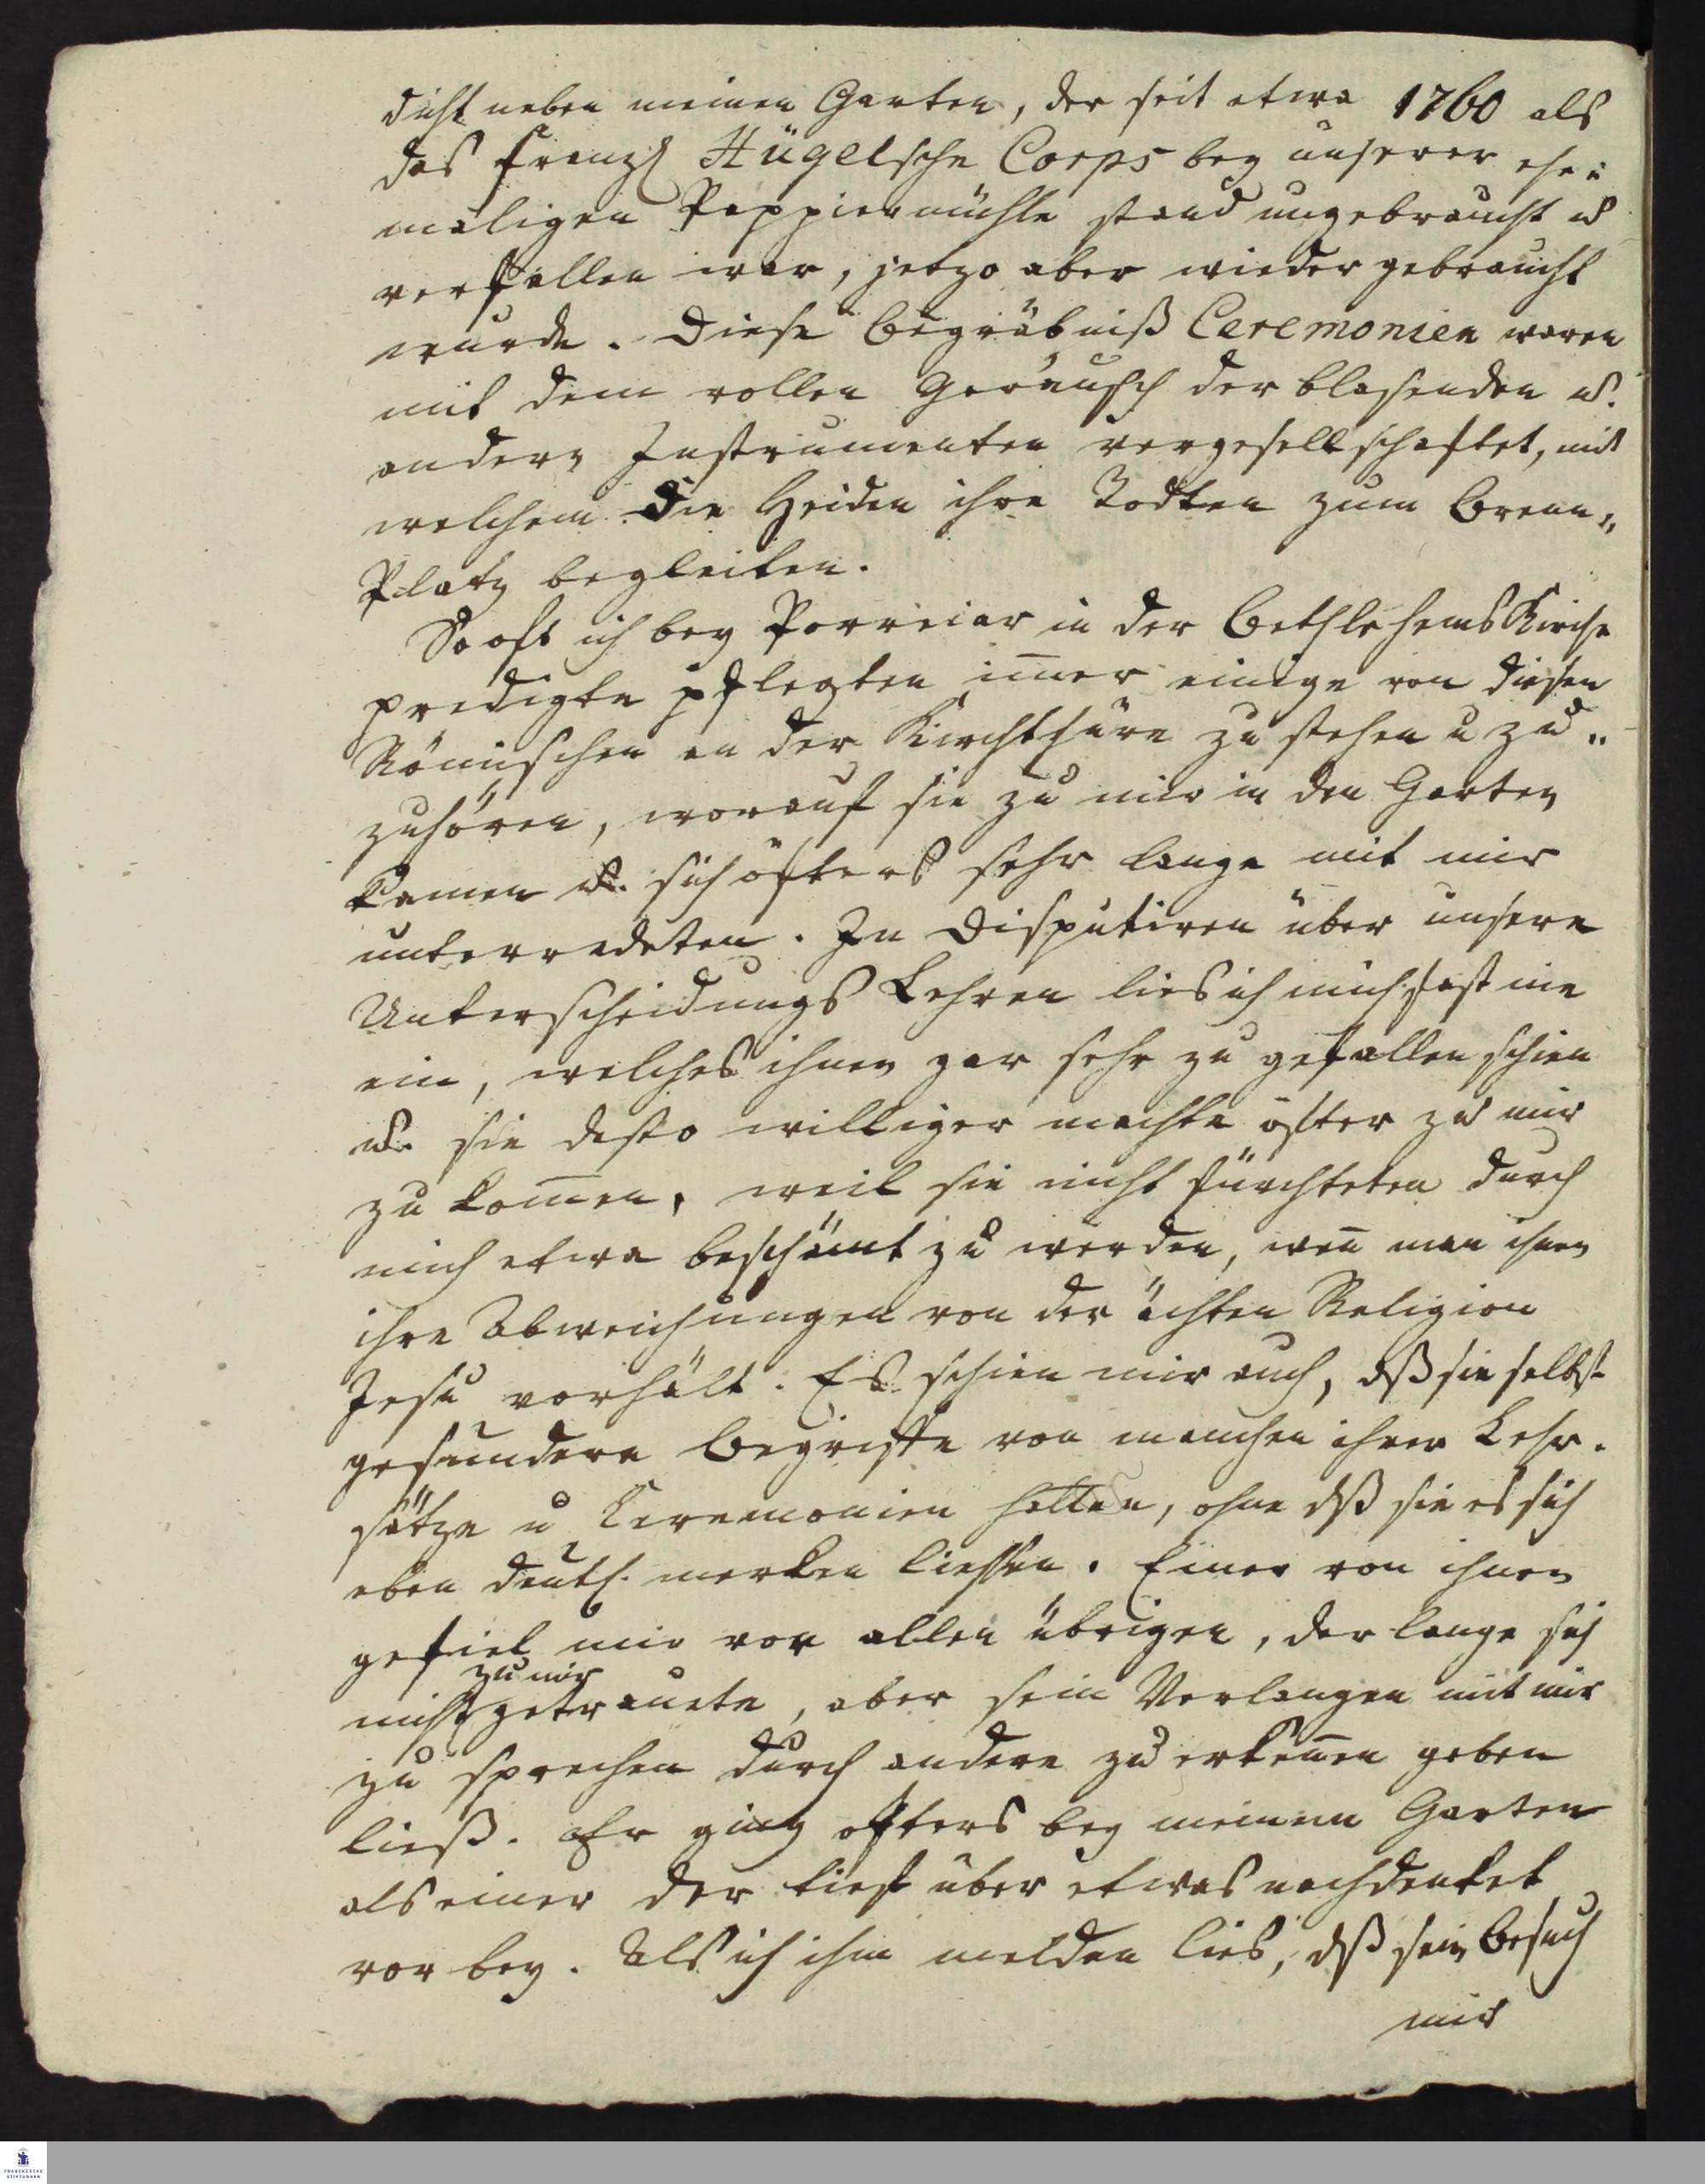 dicht neben meinen Garten, der seit etwa 1760 als
das französ Hügelsche Corps bey unserer ehe=
maligen Pappiermühle stand ungebraucht u
verfallen war, jetzo aber wieder gebraucht
wurde. Diese Begräbniß Ceremonien waren
mit dem vollen Geräusch der blasenden u.
andern Instrumenten vergesellschaftet, mit
welchem die Heiden ihre Todten zum Brenn=
Platz begleiten.
So oft ich bey Porreiar in der Bethlehems Kirche
predigte pflegten im̄er einige von diesen
Römischen an der Kirchthüre zu stehen u zu=
zuhören, worauf sie zu mir in den Garten
kamen u. sich öfters sehr lange mit mir
unterredeten. In Disputiren über unsere
Unterscheidungs Lehren lies ich mich fast nie
ein, welches ihnen gar sehr zu gefallen schien
u. sie desto williger machte öfter zu mir
zu kom̄en, weil sie nicht fürchteten durch
mich etwa beschämt zu werden, wen̄ man ihnen
ihre Abweichungen von der ächten Religion
Jesu vorhält. Es schien mir auch, dß sie selbst
gesundere Begriffe von manchen ihrer Lehr=
sätze u Ceremonien hatten, ohne dß sie es sich
eben deutl. merken liessen. Einer von ihnen
gefiel mir vor allen übrigen, der lange sich
nicht zu mir getrauete, aber sein Verlangen mit mir
zu sprechen durch andere zu erken̄en geben
ließ. Er ging öfters bey meinem Garten
als einer der tief über etwas nachdenket
vor bey. Als ich ihm melden lies, dß sein Besuch
mir
FRANCKESCHE STIFTUNGEN